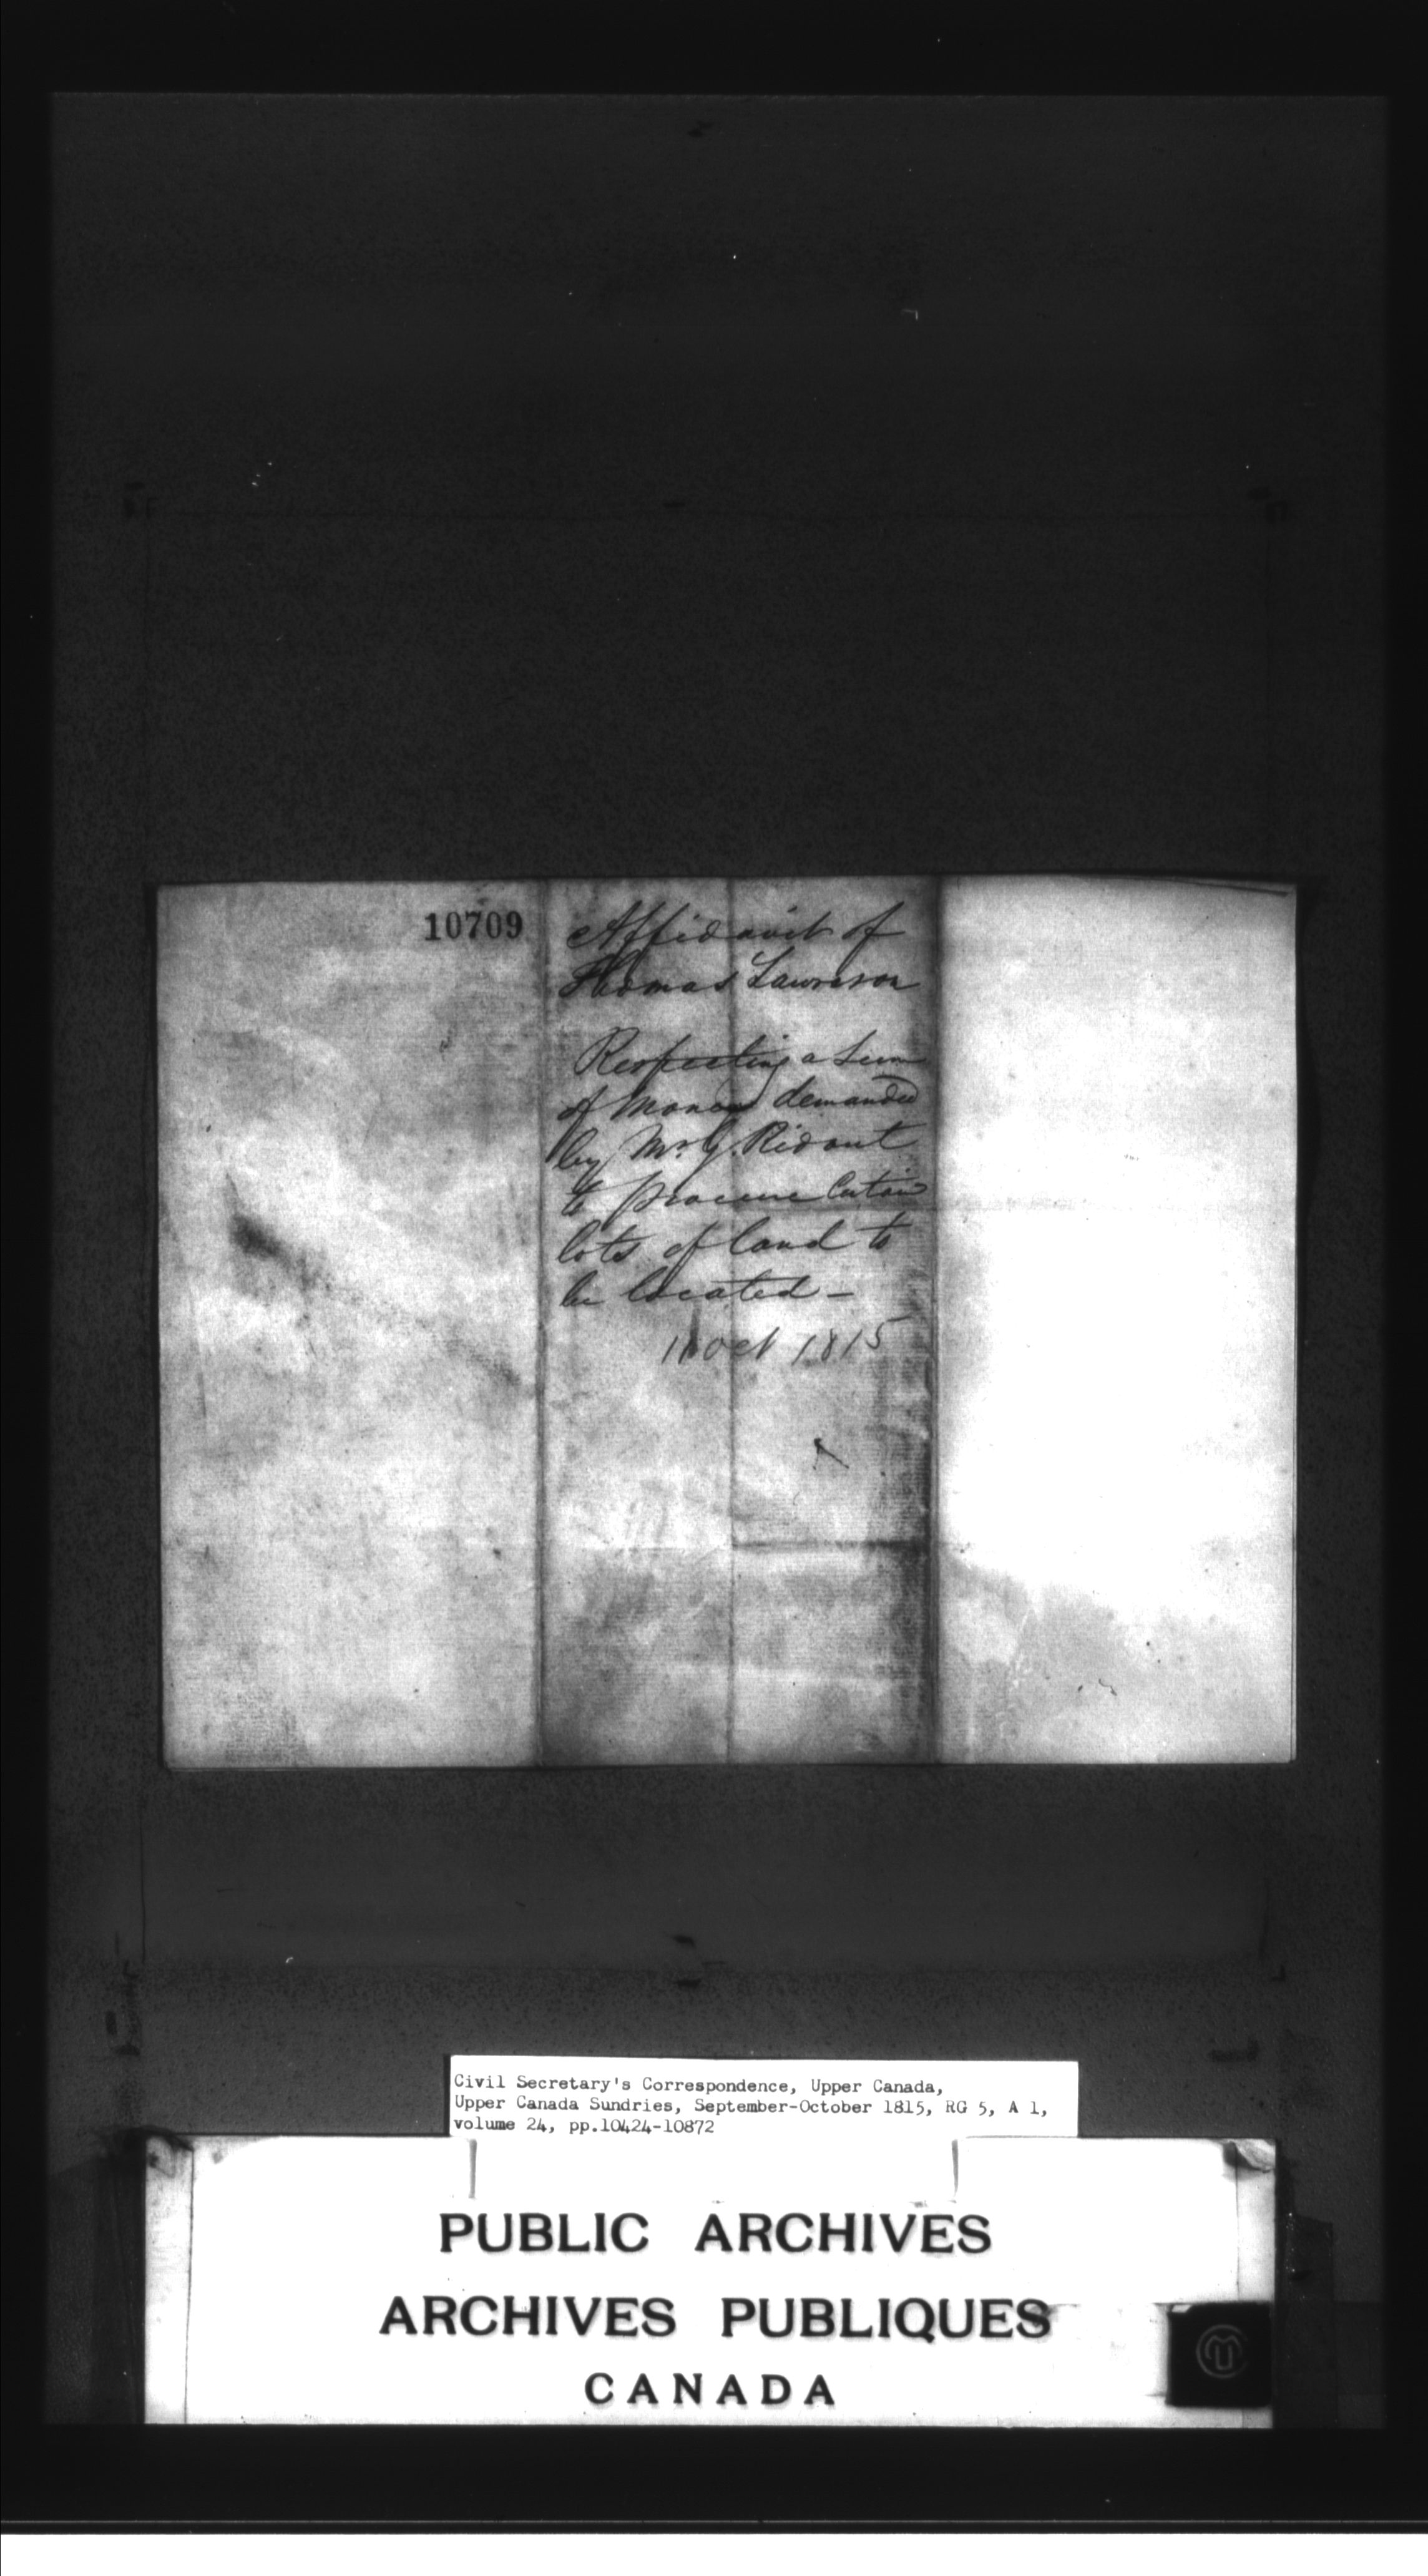 10709
Affidavit of
Thomas Lawreson
Respecting a Sum
of Money demanded
by Mr. G. Ridout
to procure Certain
lots of land to
be located —
11 Oct 1815
Civil Secretary's Correspondence, Upper Canada,
Upper Canada Sundries, September-October 1815, RG 5, A 1,
volume 24, pp.10424-10872
PUBLIC ARCHIVES
ARCHIVES PUBLIQUES
CANADA